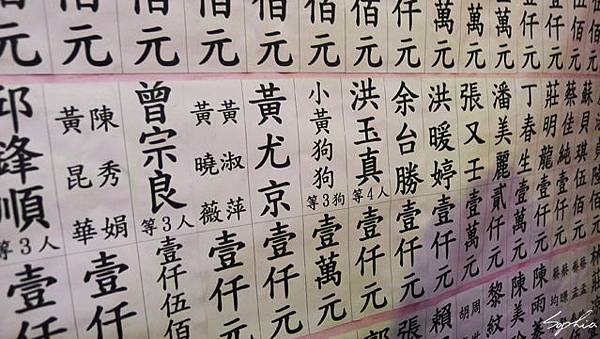 伍佰元
仟元
仟元
仟元
萬元
萬元
仟元
佰元
佰元
佰元
佰元
佰元
元
蘇貝琪伍佰元
蔡佳純壹仟元
莊明龍壹仟元
丁春生壹仟元
潘美麗貳仟元
張又壬壹萬元
洪暖婷壹仟元
余台勝壹仟元
洪玉真等4人壹仟元
小黃狗狗等3狗壹萬元
黃尤京壹仟元
黃淑萍
黃曉薇
壹仟元
曾宗良等3人壹仟伍佰元
陳秀娟
黃昆華
壹仟元
邱鋒順等3人壹仟元
陳雨
陳美
黎紋
周
胡
賴
張
郭
Sophia